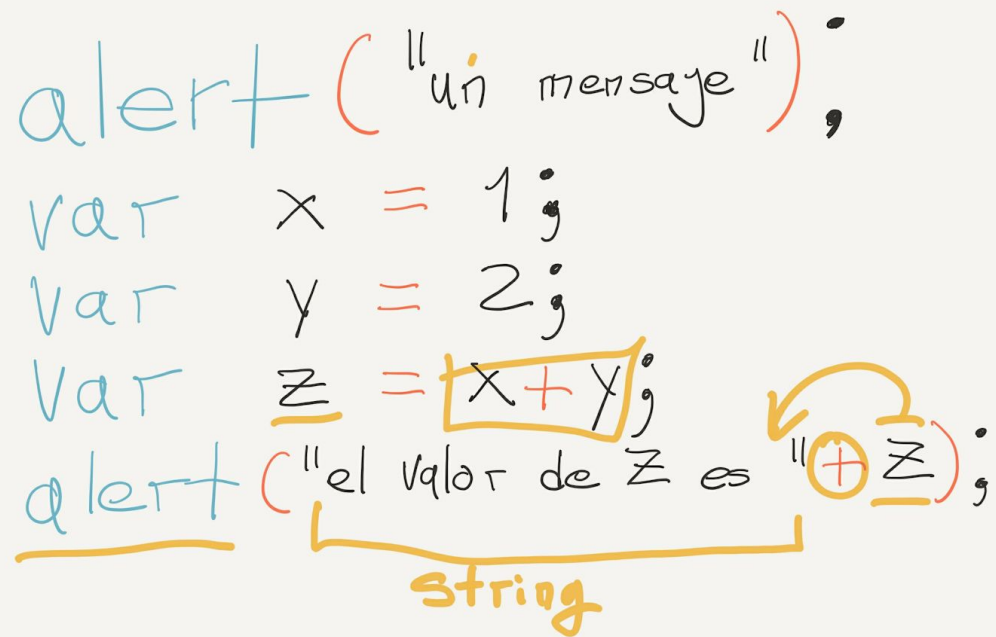 alert ("un mensaje");
var x = 1;
var y = 2;
var z = x + y;
alert ("el valor de z es " + z);
string